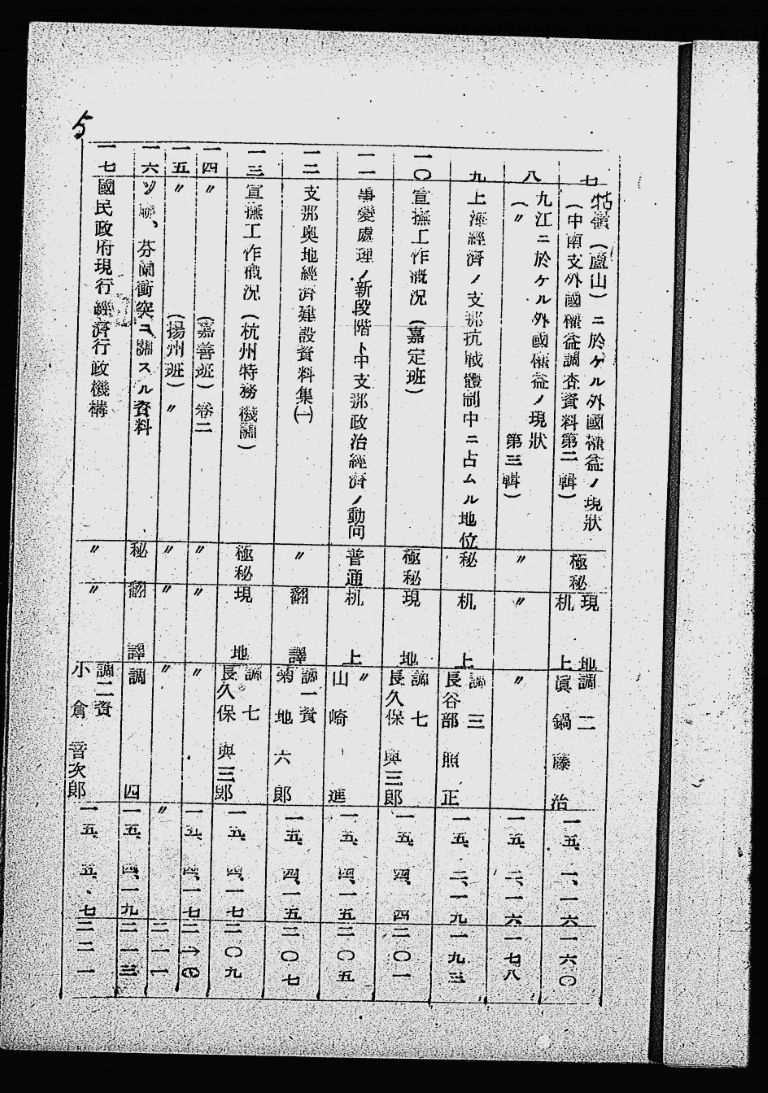 5
七 牯嶺(廬山)ニ於ケル外國權益ノ現狀 極秘 現地 調二 一五、一、一六 一六〇
(中南支外國權益調査資料第二輯) 机上 眞鍋藤治
八 九江ニ於ケル外國權益ノ現狀 〃 〃 〃 一五、二、一六 一七八
(〃 第三輯)
九 上海經濟ノ支那抗戰體制中ニ占ムル地位 秘 机上 調三 長谷部照正 一五、二、一九 一九三
一〇 宣撫工作槪況(嘉定班) 極秘 現地 調七 長久保與三郎 一五、四、四 二〇一
一一 事變處理ノ新段階ト中支那政治經濟ノ動向 普通 机上 〃 山崎進 一五、四、一五 二〇五
一二 支那奧地經濟建設資料集(一) 〃 翻譯 調一資 菊地六郎 一五、四、一五 二〇七
一三 宣撫工作槪況(杭州特務機關) 極秘 現地 調七 長久保與三郎 一五、四、一七 二〇九
一四 〃 (嘉善班)卷二 〃 〃 〃 一五、四、一七
一五 〃 (揚州班)〃 〃 〃 〃 〃 二一一
一六 ソ聯、芬蘭衝突ニ關スル資料 秘 翻譯 調四 一五、四、一九 二一三
一七 國民政府現行經濟行政機構 〃 〃 調二資 小倉音次郎 一五、五、七 二二一